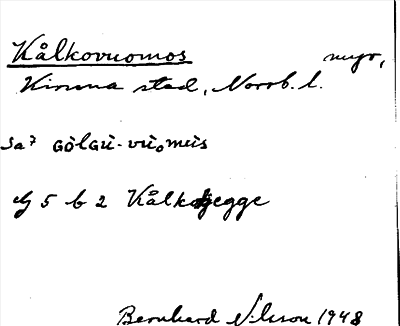 Kålkovuomos myr,
Kiruna stad, Norrb. l.
Sa? GòlGù-vuomùs
5 b 2 Kålkojegge
Bernhard Nilsson 1948